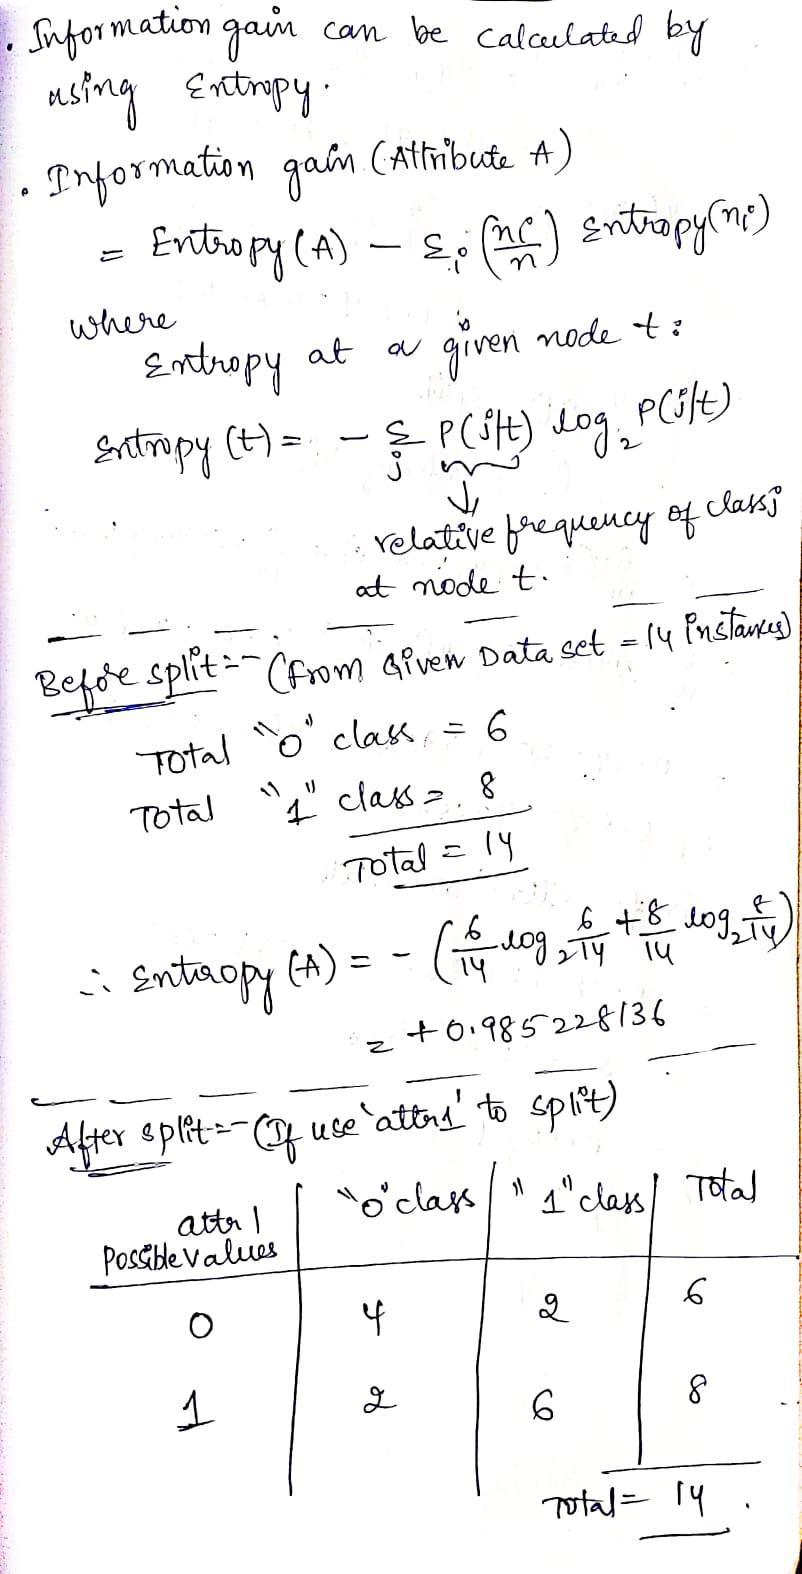 . Information gain can be calculated by
using Entropy.
. Information gain (Attribute A)
= Entropy(A) – Σi (ni/n) Entropy(ni)
where
Entropy at a given node t:
Entropy (t) = - Σj P(j/t) log2 P(j/t)
↓
relative frequency of class j
at node t.
Before split:- (From Given Data set = 14 instances)
Total "0" class = 6
Total "1" class = 8
Total = 14
∴ Entropy (A) = - (6/14 log2 6/14 + 8/14 log2 8/14)
= +0.985228136
After split:- (If use 'attr1' to split)
attr 1 "0" class "1" class Total
Possible values
0 4 2 6
1 2 6 8
Total = 14.